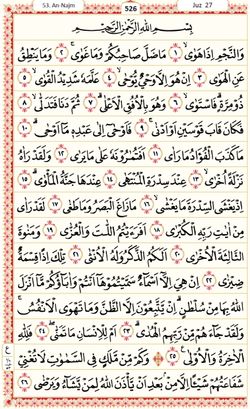 53. An-Najm 526 Juz 27
بِسْمِ اللّٰهِ الرَّحْمٰنِ الرَّحِيمِ
وَالنَّجْمِ اِذَا هَوٰىۙ ١ مَا ضَلَّ صَاحِبُكُمْ وَمَا غَوٰىۚ ٢ وَمَا يَنْطِقُ
عَنِ الْهَوٰى ٣ اِنْ هُوَ اِلَّا وَحْيٌ يُوحٰىۙ ٤ عَلَّمَهُ شَدِيدُ الْقُوٰىۙ ٥
ذُو مِرَّةٍۜ فَاسْتَوٰىۙ ٦ وَهُوَ بِالْاُفُقِ الْاَعْلٰىۜ ٧ ثُمَّ دَنَا فَتَدَلّٰىۙ ٨
فَكَانَ قَابَ قَوْسَيْنِ اَوْ اَدْنٰىۚ ٩ فَاَوْحٰٓى اِلٰى عَبْدِهٖ مَٓا اَوْحٰىۜ ١٠
مَا كَذَبَ الْفُؤٰادُ مَا رَاٰى ١١ اَفَتُمَارُونَهُ عَلٰى مَا يَرٰى ١٢ وَلَقَدْ رَاٰهُ
نَزْلَةً اُخْرٰىۙ ١٣ عِنْدَ سِدْرَةِ الْمُنْتَهٰى ١٤ عِنْدَهَا جَنَّةُ الْمَأْوٰىۜ ١٥
اِذْ يَغْشَى السِّدْرَةَ مَا يَغْشٰىۙ ١٦ مَا زَاغَ الْبَصَرُ وَمَا طَغٰى ١٧ لَقَدْ رَاٰى
مِنْ اٰيَاتِ رَبِّهِ الْكُبْرٰى ١٨ اَفَرَاَيْتُمُ اللَّاتَ وَالْعُزّٰىۙ ١٩ وَمَنٰوةَ
الثَّالِثَةَ الْاُخْرٰى ٢٠ اَلَكُمُ الذَّكَرُ وَلَهُ الْاُنْثٰى ٢١ تِلْكَ اِذًا قِسْمَةٌ
ضِيزٰى ٢٢ اِنْ هِيَ اِلَّٓا اَسْمَٓاءٌ سَمَّيْتُمُوهَٓا اَنْتُمْ وَاٰبَٓاؤُكُمْ مَٓا اَنْزَلَ
اللّٰهُ بِهَا مِنْ سُلْطَانٍۜ اِنْ يَتَّبِعُونَ اِلَّا الظَّنَّ وَمَا تَهْوَى الْاَنْفُسُۚ
وَلَقَدْ جَٓاءَهُمْ مِنْ رَبِّهِمُ الْهُدٰىۜ ٢٣ اَمْ لِلْاِنْسَانِ مَا تَمَنّٰىۘ ٢٤ فَلِلّٰهِ
الْاٰخِرَةُ وَالْاُو۫لٰى۟ ٢٥ وَكَمْ مِنْ مَلَكٍ فِي السَّمٰوَاتِ لَا تُغْنٖي
شَفَاعَتُهُمْ شَيْـًٔا اِلَّا مِنْ بَعْدِ اَنْ يَأْذَنَ اللّٰهُ لِمَنْ يَشَٓاءُ وَيَرْضٰى ٢٦